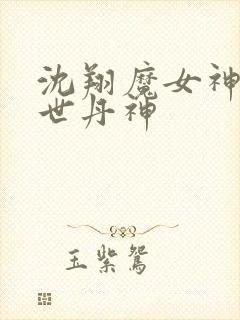 沈翔魔女神
世丹神
玉紫鸳